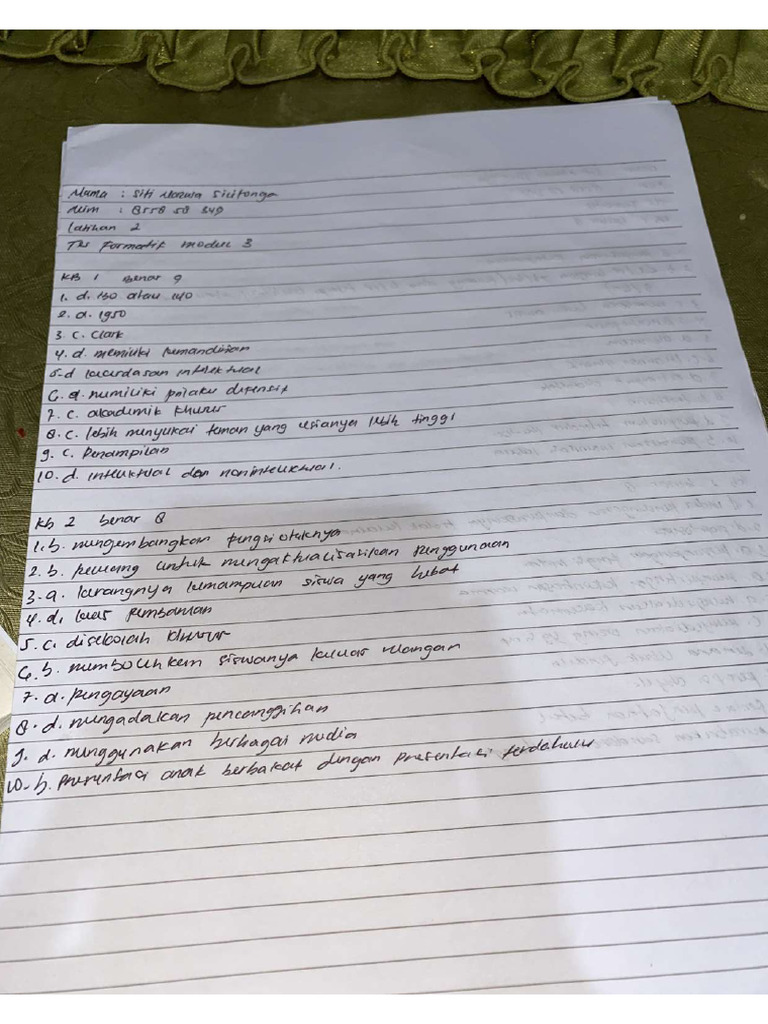 Nama : Siti Sicitonga
Nim : 8558 58 349
Latihan 2
Tes Formatif modul 3
KB 1 Benar 9
1. d. 130 atau 140
2. a. 1950
3. c. Clark
4. d. memiliki kemandirian
5. d kecerdasan intelektual
6. a. memiliki prilaku defensif
7. c. akademik khusus
8. c. lebih menyukai teman yang usianya lebih tinggi
9. c. Penampilan
10. d. intelektual dan nonintelektual.
kb 2 benar 8
1. b. mengembangkan fungsi otaknya
2. b. peluang untuk mengaktualisasikan penggunaan
3. a. kurangnya kemampuan siswa yang hebat
4. d. luas
5. c. disekolah khusus
6. b. siswanya keluar ruangan
7. a. pengayaan
8. d. mengadakan pencanggihan
9. d. menggunakan berbagai media
10. b. Presentasi anak berbakat dengan presentasi terdahulu